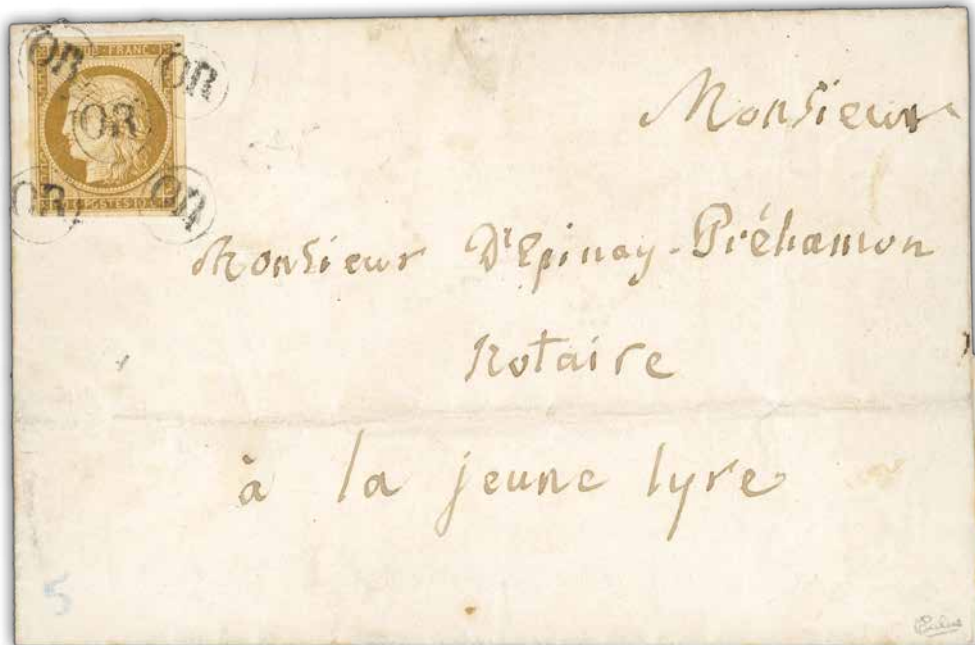 OR OR
OR
OR OR
FRANC
POSTES 10
Monsieur
Monsieur D'Epinay-Préhamon
Notaire
à la jeune lyre
5